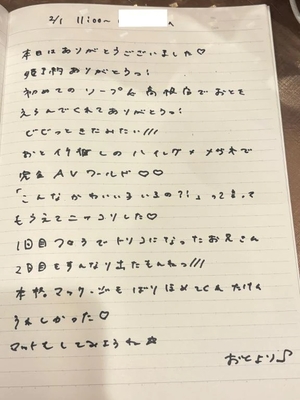 2/1 11:00〜
本日はありがとうございました♡
予約ありがとうっ!
初めてのソープ&高級店でおとを
えらんでくれてありがとうっ!
びびっときたみたい///
おと
完全AVワールド♡♡
「こんなかわいい子いるの?!」って言って
もらえてニッコリした♡
1回目フロうでトリコになったお兄さん
2回目もすんなり出たもんねっ///
本格マッサージもほめてくれたけん
うれしかった♡
してみようね☆
おとより♪